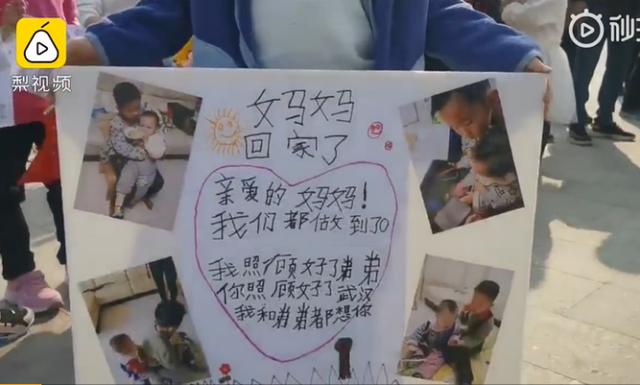 梨视频
妈妈
回家了
亲爱的妈妈！
我们都做到了。
我照顾好了弟弟
你照顾好了武汉
我和弟弟都想你